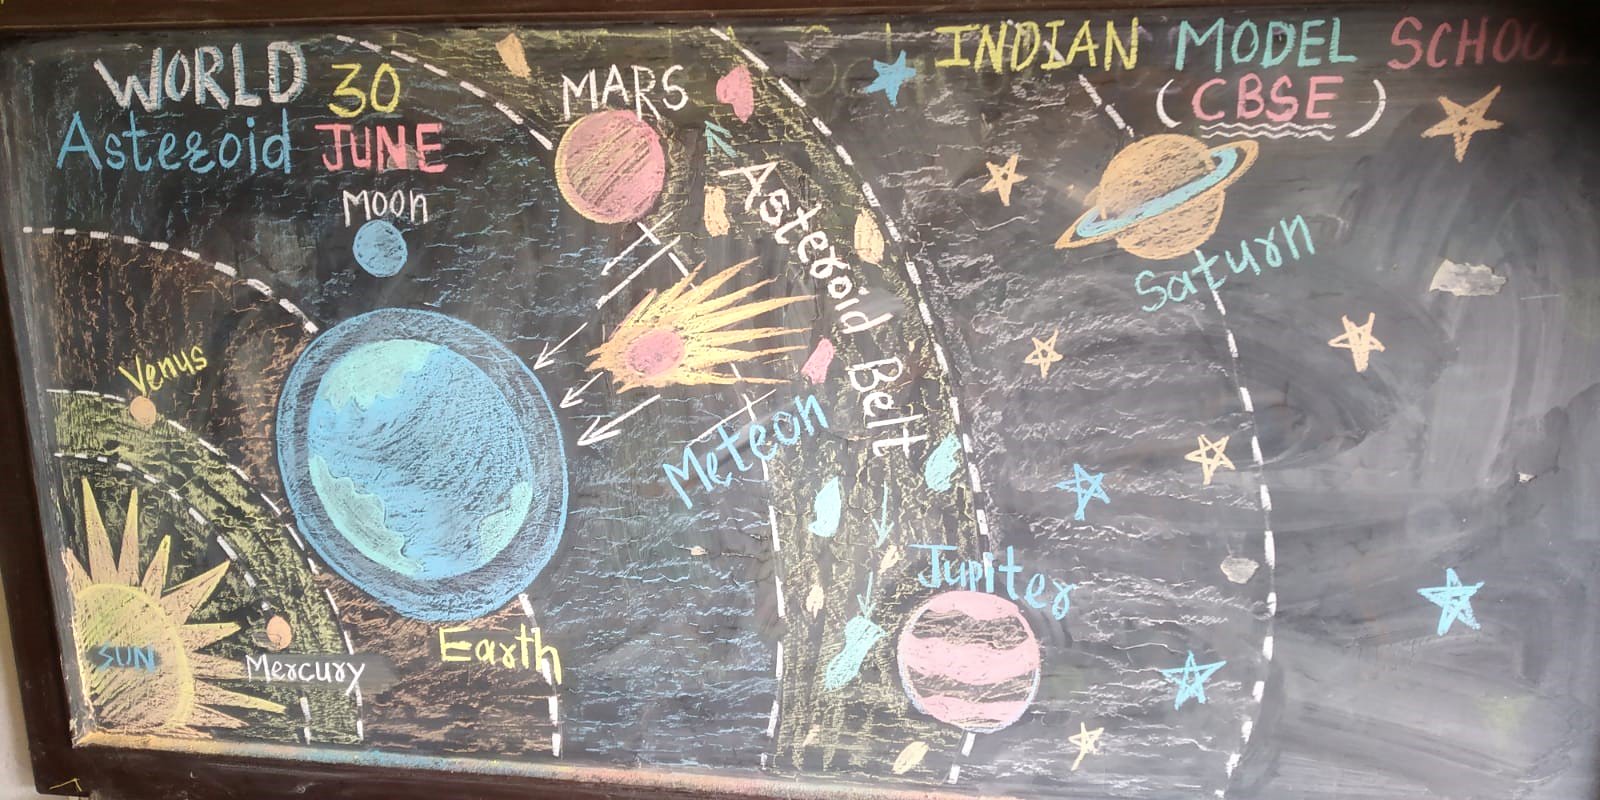 WORLD 30
Asteroid JUNE
INDIAN MODEL SCHOOL
(CBSE)
MARS
Moon
Asteroid Belt
Saturn
Venus
Meteon
Jupiter
Earth
SUN
Mercury